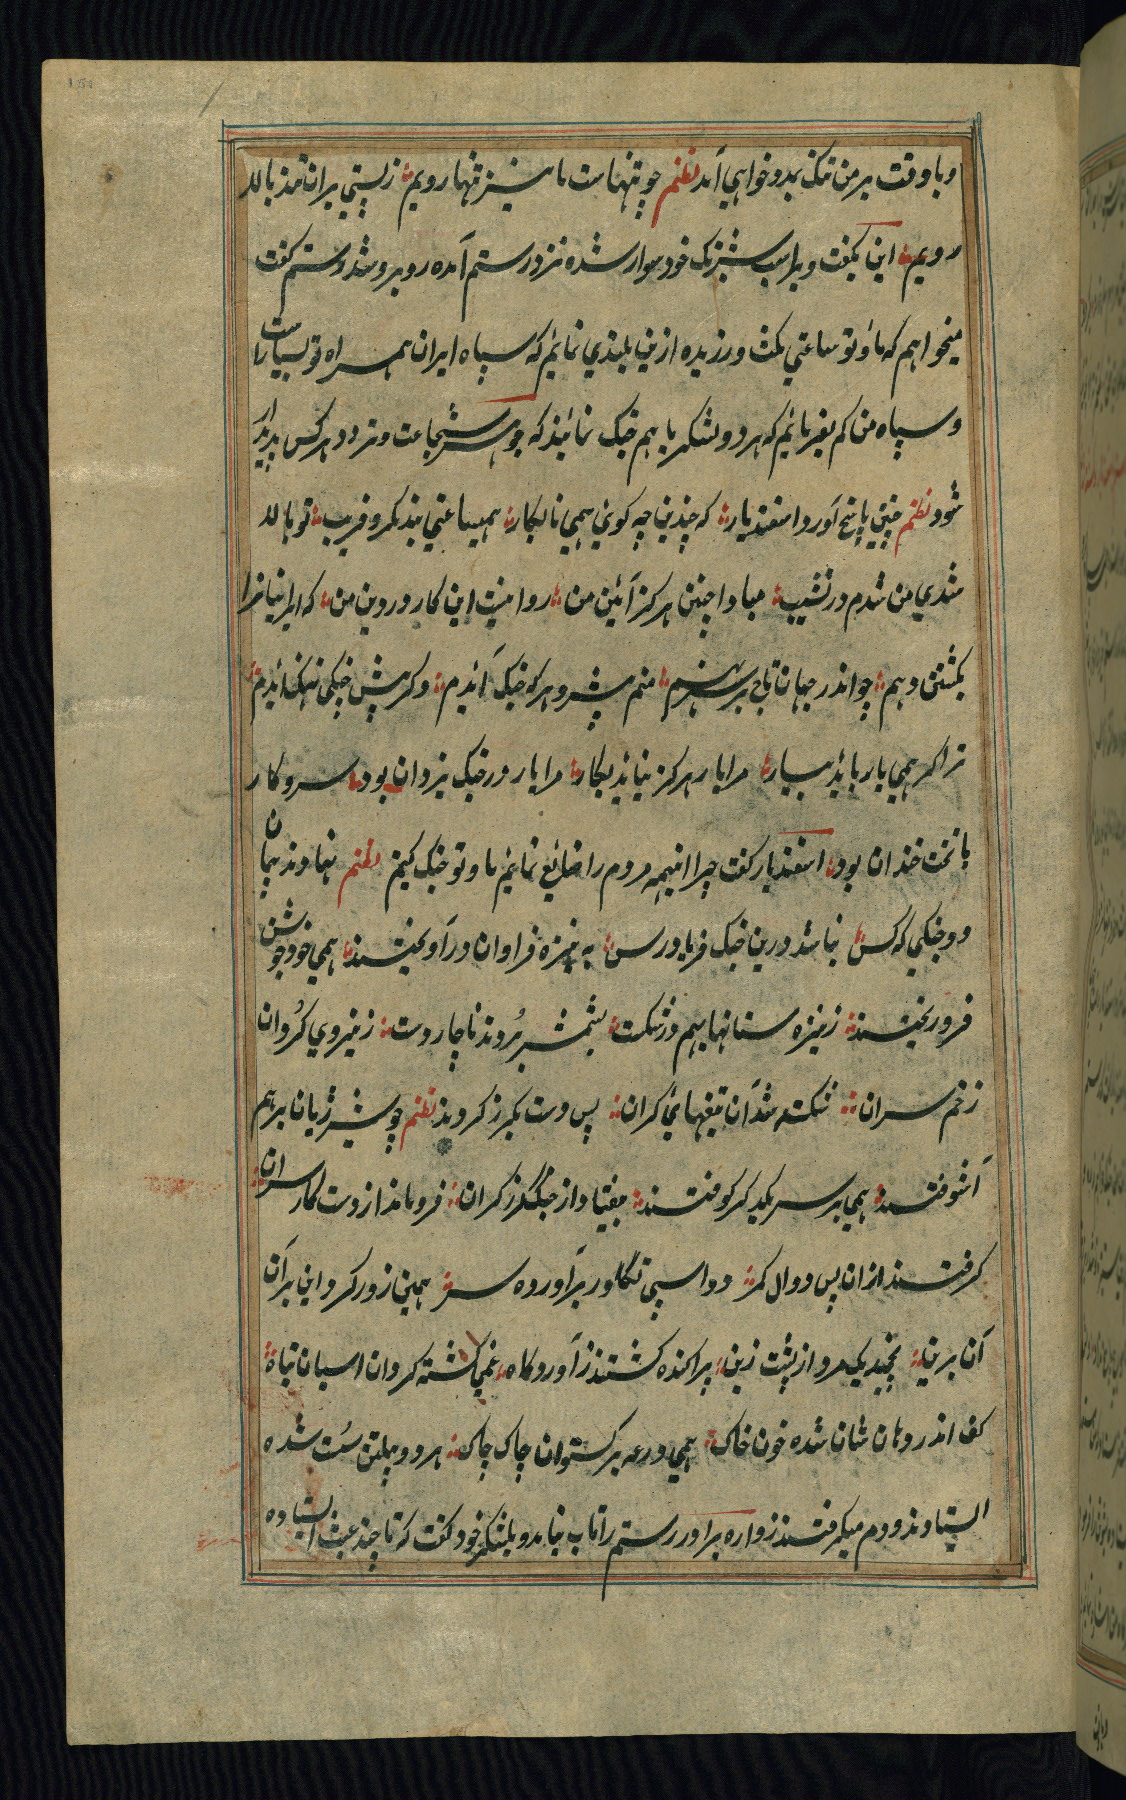 و با وقت بر من تنک بدو خواهی آمد نظم چو تنهاست ما نیز تنها رویم ز پستی بران تند بالا
رویم این بگفت و براسپ شبرنگ خود سوار شده نزد رستم آمده روبرو شد رستم گفت
میخواهم که ما و تو ساعتی مکث ورزیده ازین بلندی نمائیم که سپاه ایران همراه تو بسیار است
و سپاه من کم بفرمائیم که هر دو لشکر با هم جنک نمایند که جوهر شجاعت و تردد هرکس پدیدار
شود نظم چنین پاسخ آورد اسفندیار که چندین چه کوئی همی نابکار همیساعتی بند مکر و فریب تو بالا
شدی من شدم در نشیب مبادا چنین هرکز آئین من روا نیست این کار در دین من که ایرانیانرا
بکشتن دهم چو اندر جهان تاج بر سر نهم منم پیشرو هرکه جنک آئدم وکر پیش جنکی نهنک آئدم
ترا کر همی یار باید بیار مرا یار هرکز نیاید بکار مرا یار در جنک یزدان بود سر و کار
با بخت خندان بود اسفندیار کفت چرا اینهمه مردم را ضائع نمائیم ما و تو جنک کنیم نظم نهادند پیمان
دو جنکی که کس نباشد درین جنک فریادرس به نیزه فراوان در آویختند همی خود و جوشن
فرو ریختند ز نیزه سنانها بهم در شکست بشمشیر بردند ناچار دست ز نیروی کردان
زخم سران شکسته شد آن تیغهای کران پس دست بکرز کردند نظم چو شیر ژیان بر هم
آشوفتند همی بر سر یکدیکر کوفتند بیفتاد از جنک کرز کران فرو ماند از دست کار سران
کرفتند ازان پس دوال کمر دو اسپی تکاور برآورده سر همین زور کرد این بران
آن برین نجنبید یک مرد از پشت زین پراکنده کشتند ز آوردکاه غمی کشته کردان اسبان تباه
کف اندر دهان شان شده خون خاک همی درعه برکستوان چاک چاک هر دو پیلتن سست شده
ایستادند و دم میکرفتند زواره برادر رستم را تاب نیامد و بلشکر خود کفت که تا چند عبث ایستاده